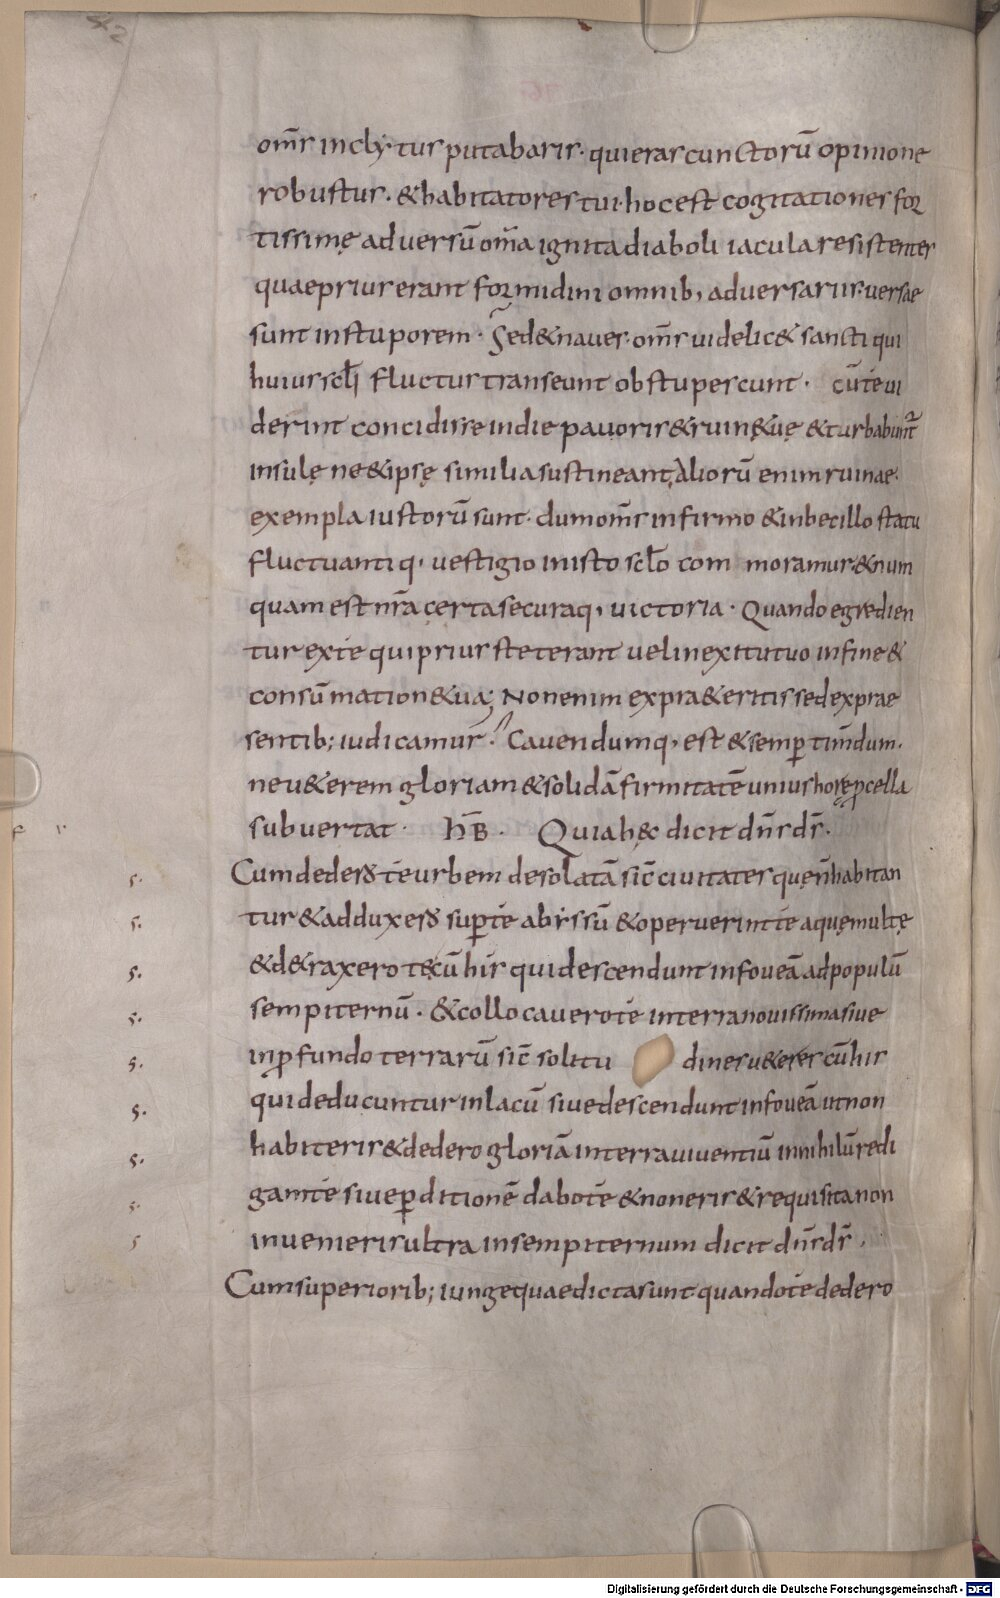 om̄s inclytus putabaris. qui eras cunctorū opinione
robustus. & habitatores tui. hoc est cogitationes for
tissimę adversū om̄a ignita diaboli iacula resistentes
quae prius erant formidini omnib, adversariis. versae
sunt in stuporem. Sed & naves. om̄s videlic& sancti qui
huius scl̄i fluctus transeunt obstupescunt. cū te vi
derint concidisse in die pavoris & ruinę tuę & turbabunt̄
insulę ne & ipsę similia sustineant, Aliorū enim ruinae.
exempla iustorū sunt. dum om̄s infirmo & inbecillo statu
fluctuantiq, vestigio in isto scl̄o com moramur & num
quam est nr̄a certa securaq, victoria. Quando egredien
tur ex te qui prius steterant vel in exitu tuo in fine &
consūmatione tua; Non enim ex praeteritis sed ex prae
sentib; iudicamur. Cavendumq, est & semp timendum.
ne veterem gloriam & solidā firmitatē unius horę pcella
subvertat. H̄B. Quia hęc dicit dn̄s ds̄.
Cum dedero te urbem desolatā sic̄ civitates quę n̄ habitan
tur & adduxero sup te abyssū & operuerint te aquę multę
& detraxero te cū his qui descendunt in foveā ad populū
sempiternū. & collocavero te in terra novissima sive
in pfundo terrarū sic̄ solitu dines veteres cū his
qui deducuntur in lacū sive descendunt in foveā ut non
habiteris & dedero gloriā in terra viventiū in nihilū redi
gam te sive pditionē dabo te & non eris & requisita non
invenieris ultra in sempiternum dicit dn̄s ds̄.
Cum superiorib; iunge quae dicta sunt quando te dedero
Digitalisierung gefördert durch die Deutsche Forschungsgemeinschaft - DFG